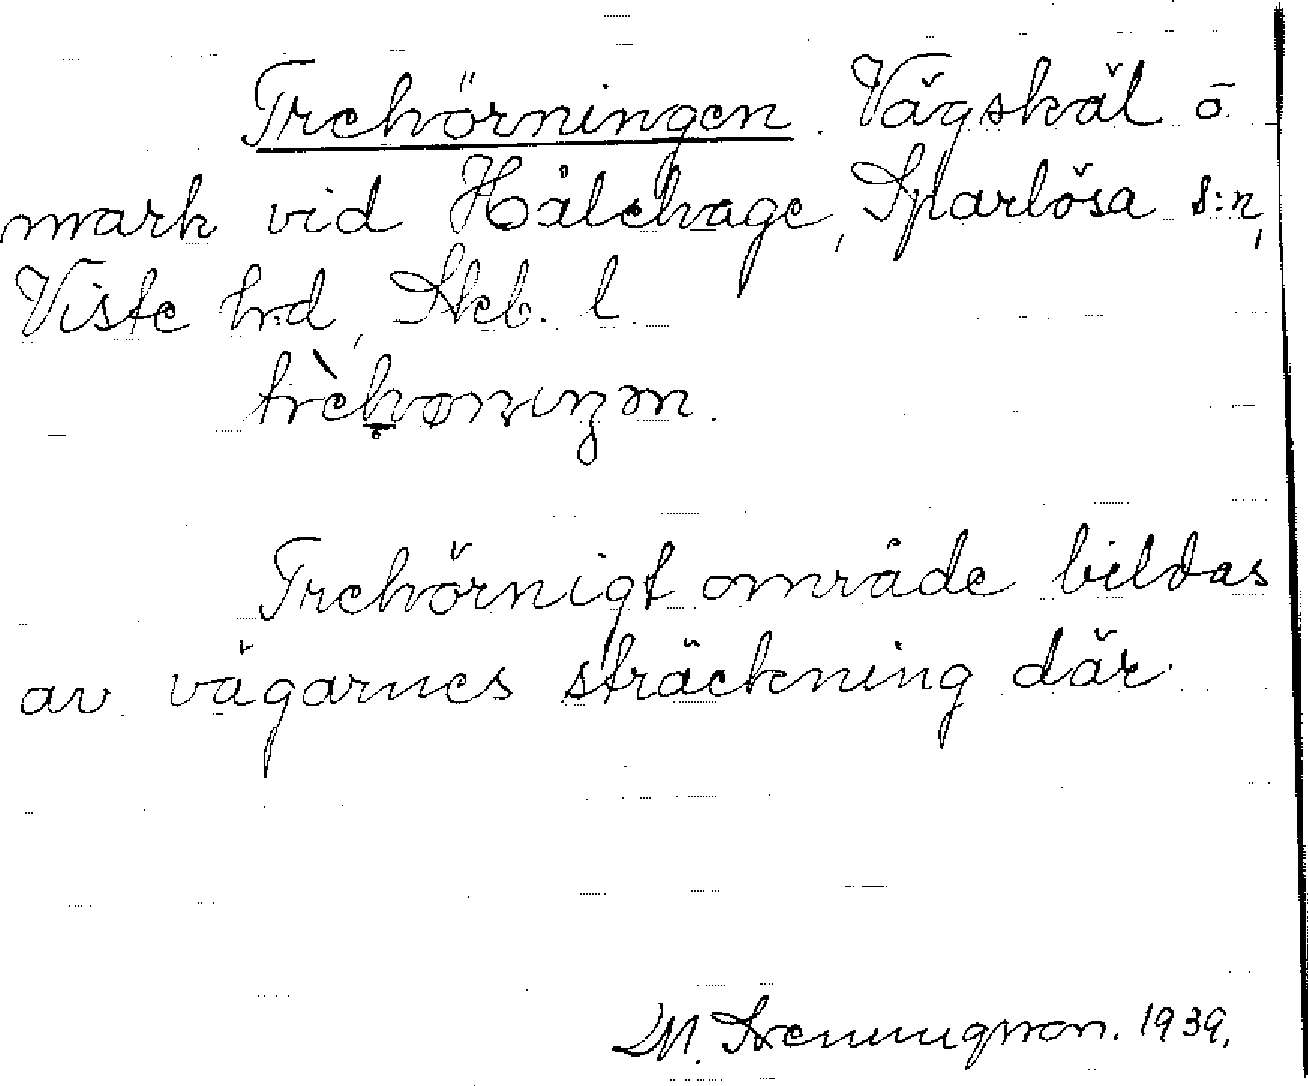 Trehörningen. Vägskäl o
mark vid Hålehage, Sparlösa s:n,
Viste hrd, Skb. l.
Trehörnigt område bildas
av vägarnes sträckning där.
M. 1939.